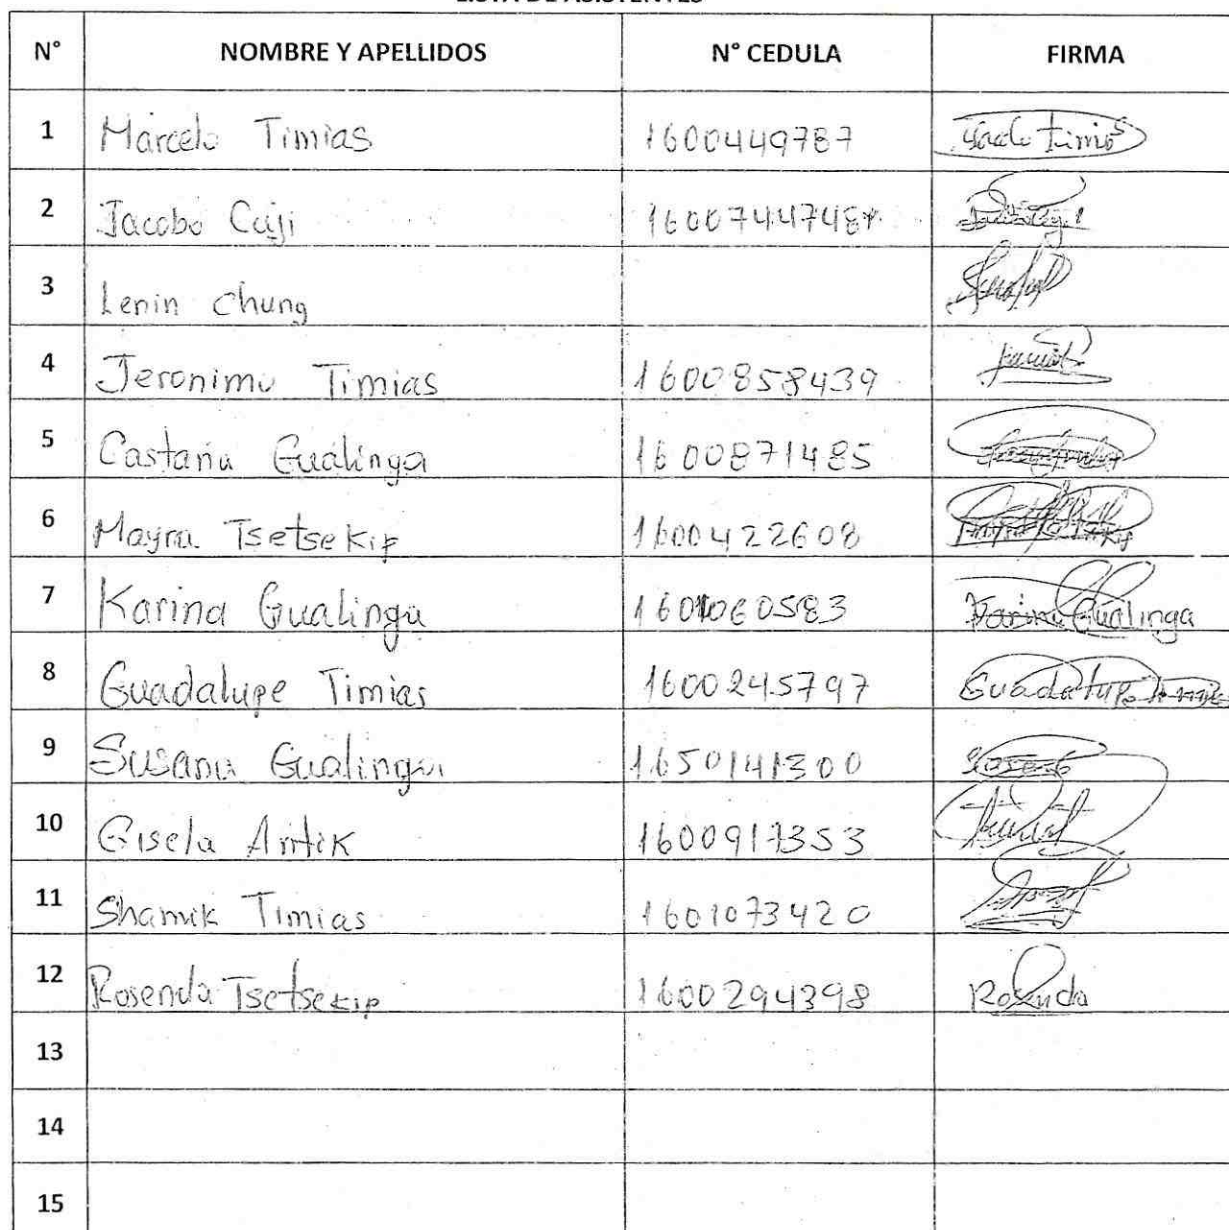 LISTA DE ASISTENTES
N° NOMBRE Y APELLIDOS N° CEDULA FIRMA
1 Marcelo Timias 1600449787
2 Jacobo Cuji
3 Lenin Chung
4 Jeronimo Timias 1600858439
5 Castaña Gualinga 1600871485
6 Mayra Tsetsekip 1600422608
7 Karina Gualinga 1601060583 Karina Gualinga
8 Guadalupe Timias 1600245797 Guadalupe Timias
9 Susana Gualinga 1650141300
10 Gisela Antik 1600917353
11 Shamik Timias 1601073420
12 Rosenda Tsetsekip 1600294398 Rosenda
13
14
15